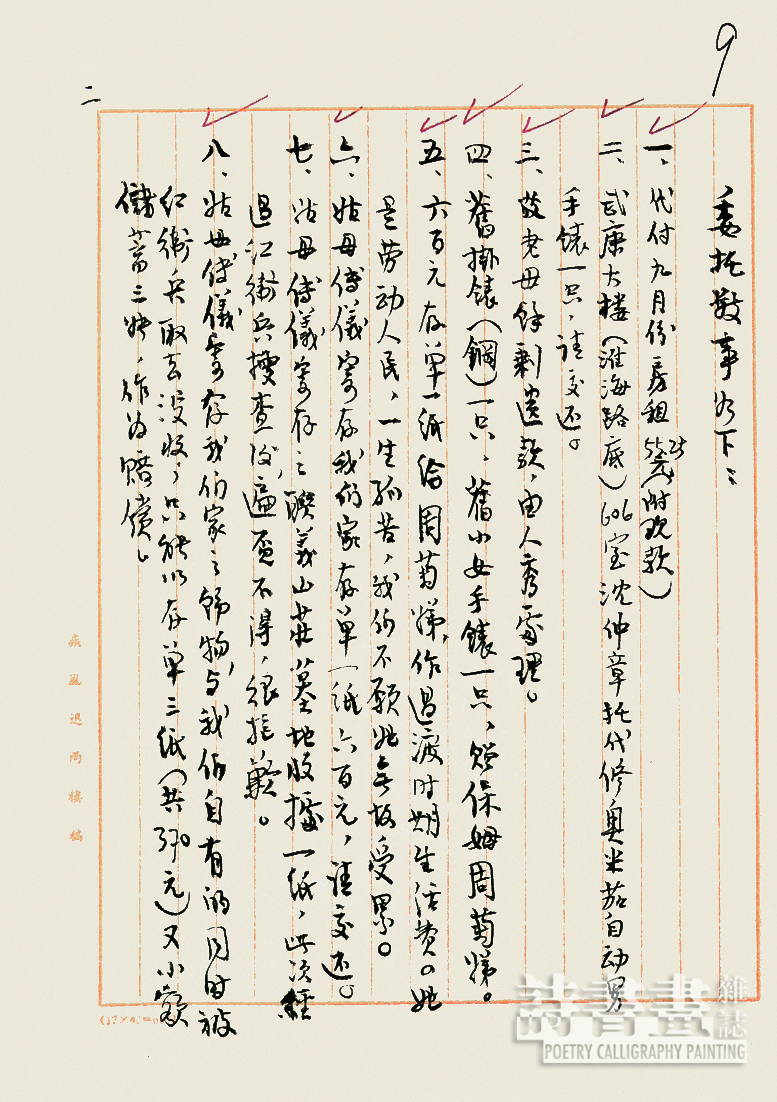 9
二
委托數事如下：
一、代付九月份房租55.25元（附現款）
二、武康大楼（淮海路底）606室沈仲章托代修奥米茄自动男
手錶一只，請交还。
三、故老母余剩遺款，由人秀處理。
四、舊掛錶（鋼）一只，舊小女手錶一只，贈保姆周菊娣。
五、六百元存单一纸给周菊娣，作过渡时期生活费。她
是劳动人民，一生孤苦，我们不願她无故受累。
六、姑母傅儀寄存我们家存单一纸六百元，請交还。
七、姑母傅儀寄存之聯義山莊墓地收據一纸，此次經
过红衛兵搜查後，遍覓不得，很抱歉。
八、姑母傅儀寄存我们家之飾物，与我们自有的同时被
红衛兵取去沒收，只能以存单三纸（共370元）又小额
儲蓄三张，作为賠償。
疾風迅雨樓稿
詩書畫
雜誌
POETRY CALLIGRAPHY PAINTING